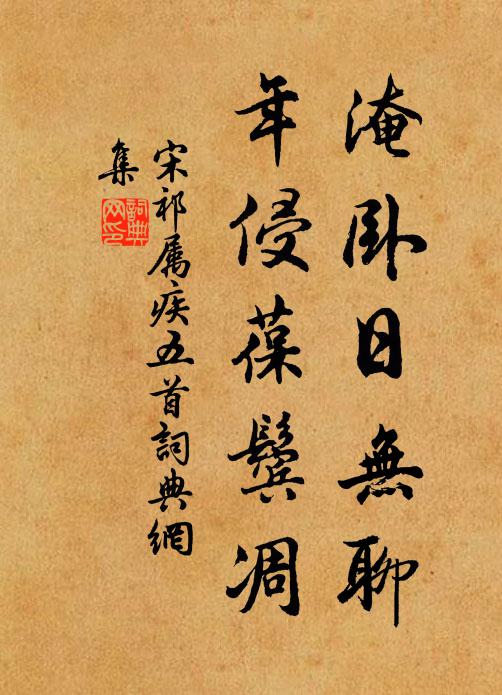 淹卧日無聊
年侵葆鬓凋
宋祁属疾五首詞典網
集
詞典
网印